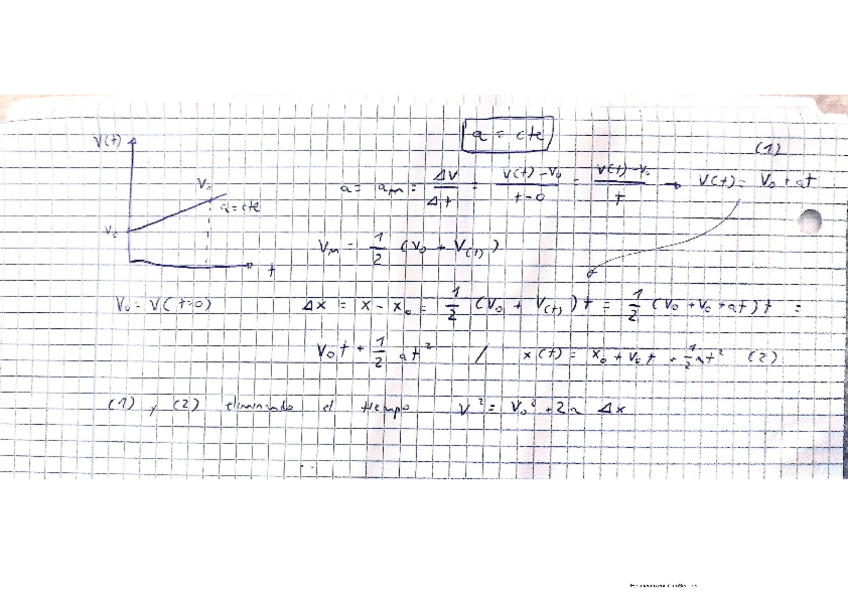 a = cte
V(t)
(1)
a = a_m = ΔV/Δt = (V(t) - V₀)/(t - 0) = (V(t) - V₀)/t → V(t) = V₀ + at
V₀
a = cte
V₀
V_m = 1/2 (V₀ + V(t))
t
V₀ = V(t=0)
Δx = x - x₀ = 1/2 (V₀ + V(t)) t = 1/2 (V₀ + V₀ + at) t =
V₀t + 1/2 at² / x(t) = x₀ + V₀t + 1/2 at² (2)
(1) y (2) eliminando el tiempo V² = V₀² + 2a Δx